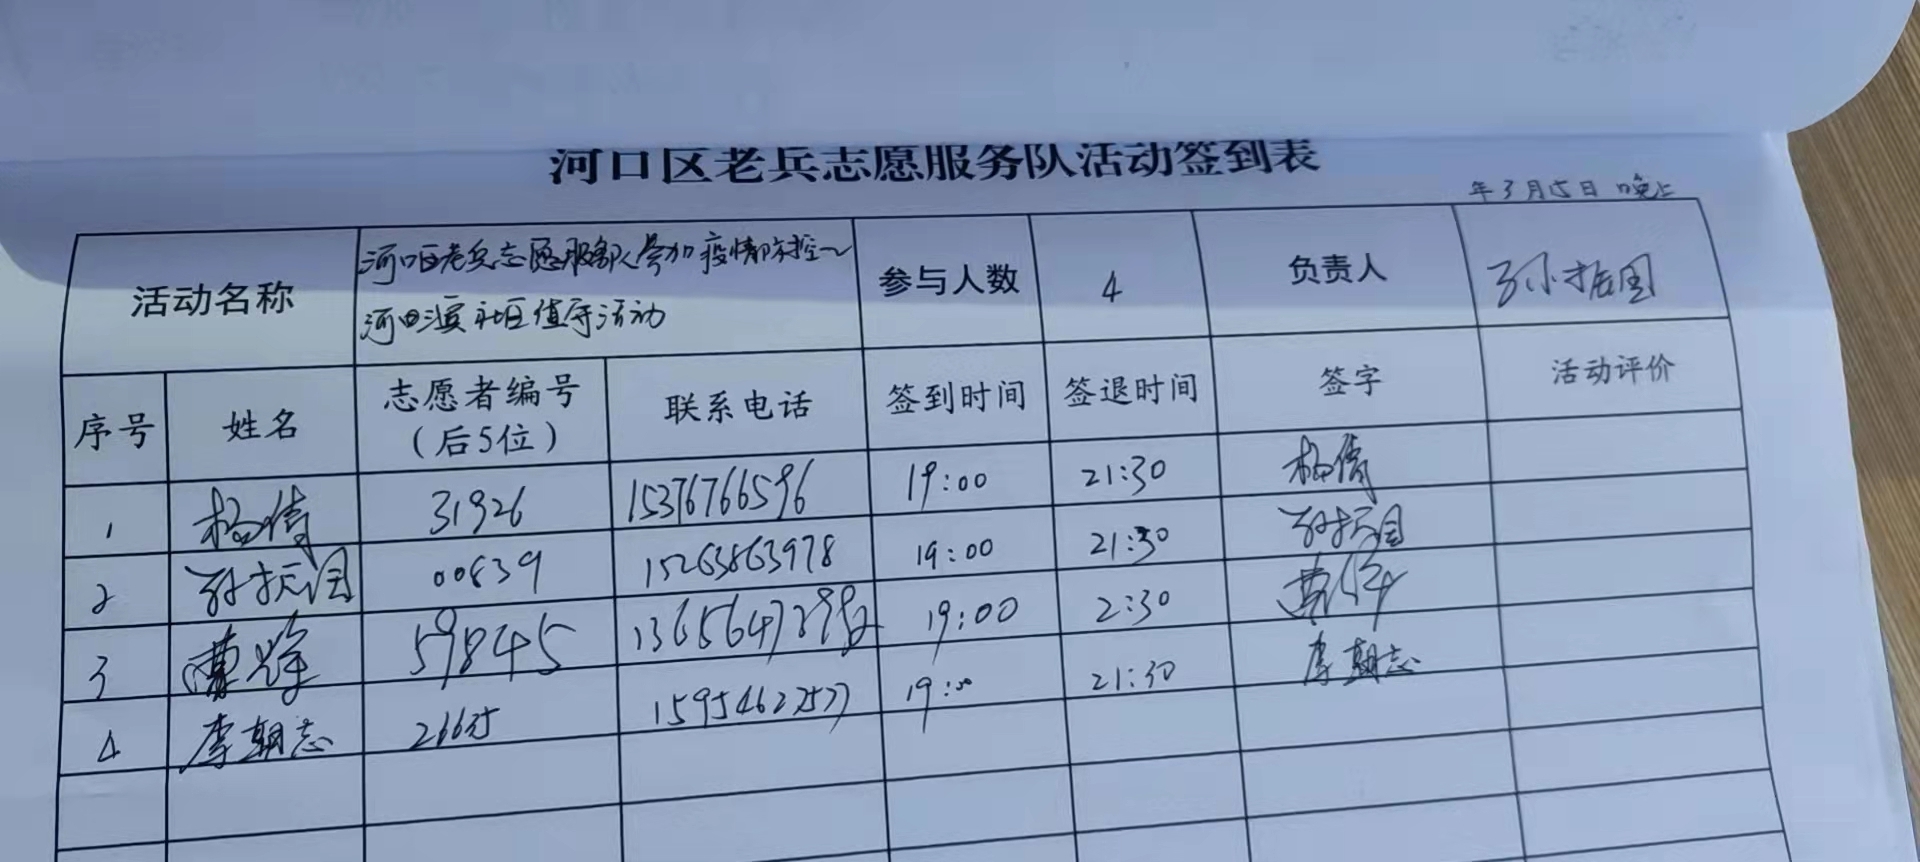 河口区老兵志愿服务队活动签到表
年3月15日 晚上
活动名称 河口区老兵志愿服务队参加疫情防控 参与人数 4 负责人 孙振国
河口 社区值守活动
序号 姓名 志愿者编号 联系电话 签到时间 签退时间 签字 活动评价
(后5位)
1 杨倩 31926 15376766596 19:00 21:30 杨倩
2 孙振国 00839 15263863978 19:00 21:30 孙振国
3 曹 59845 19:00 2:30 曹
4 李朝志 19:00 21:30 李朝志